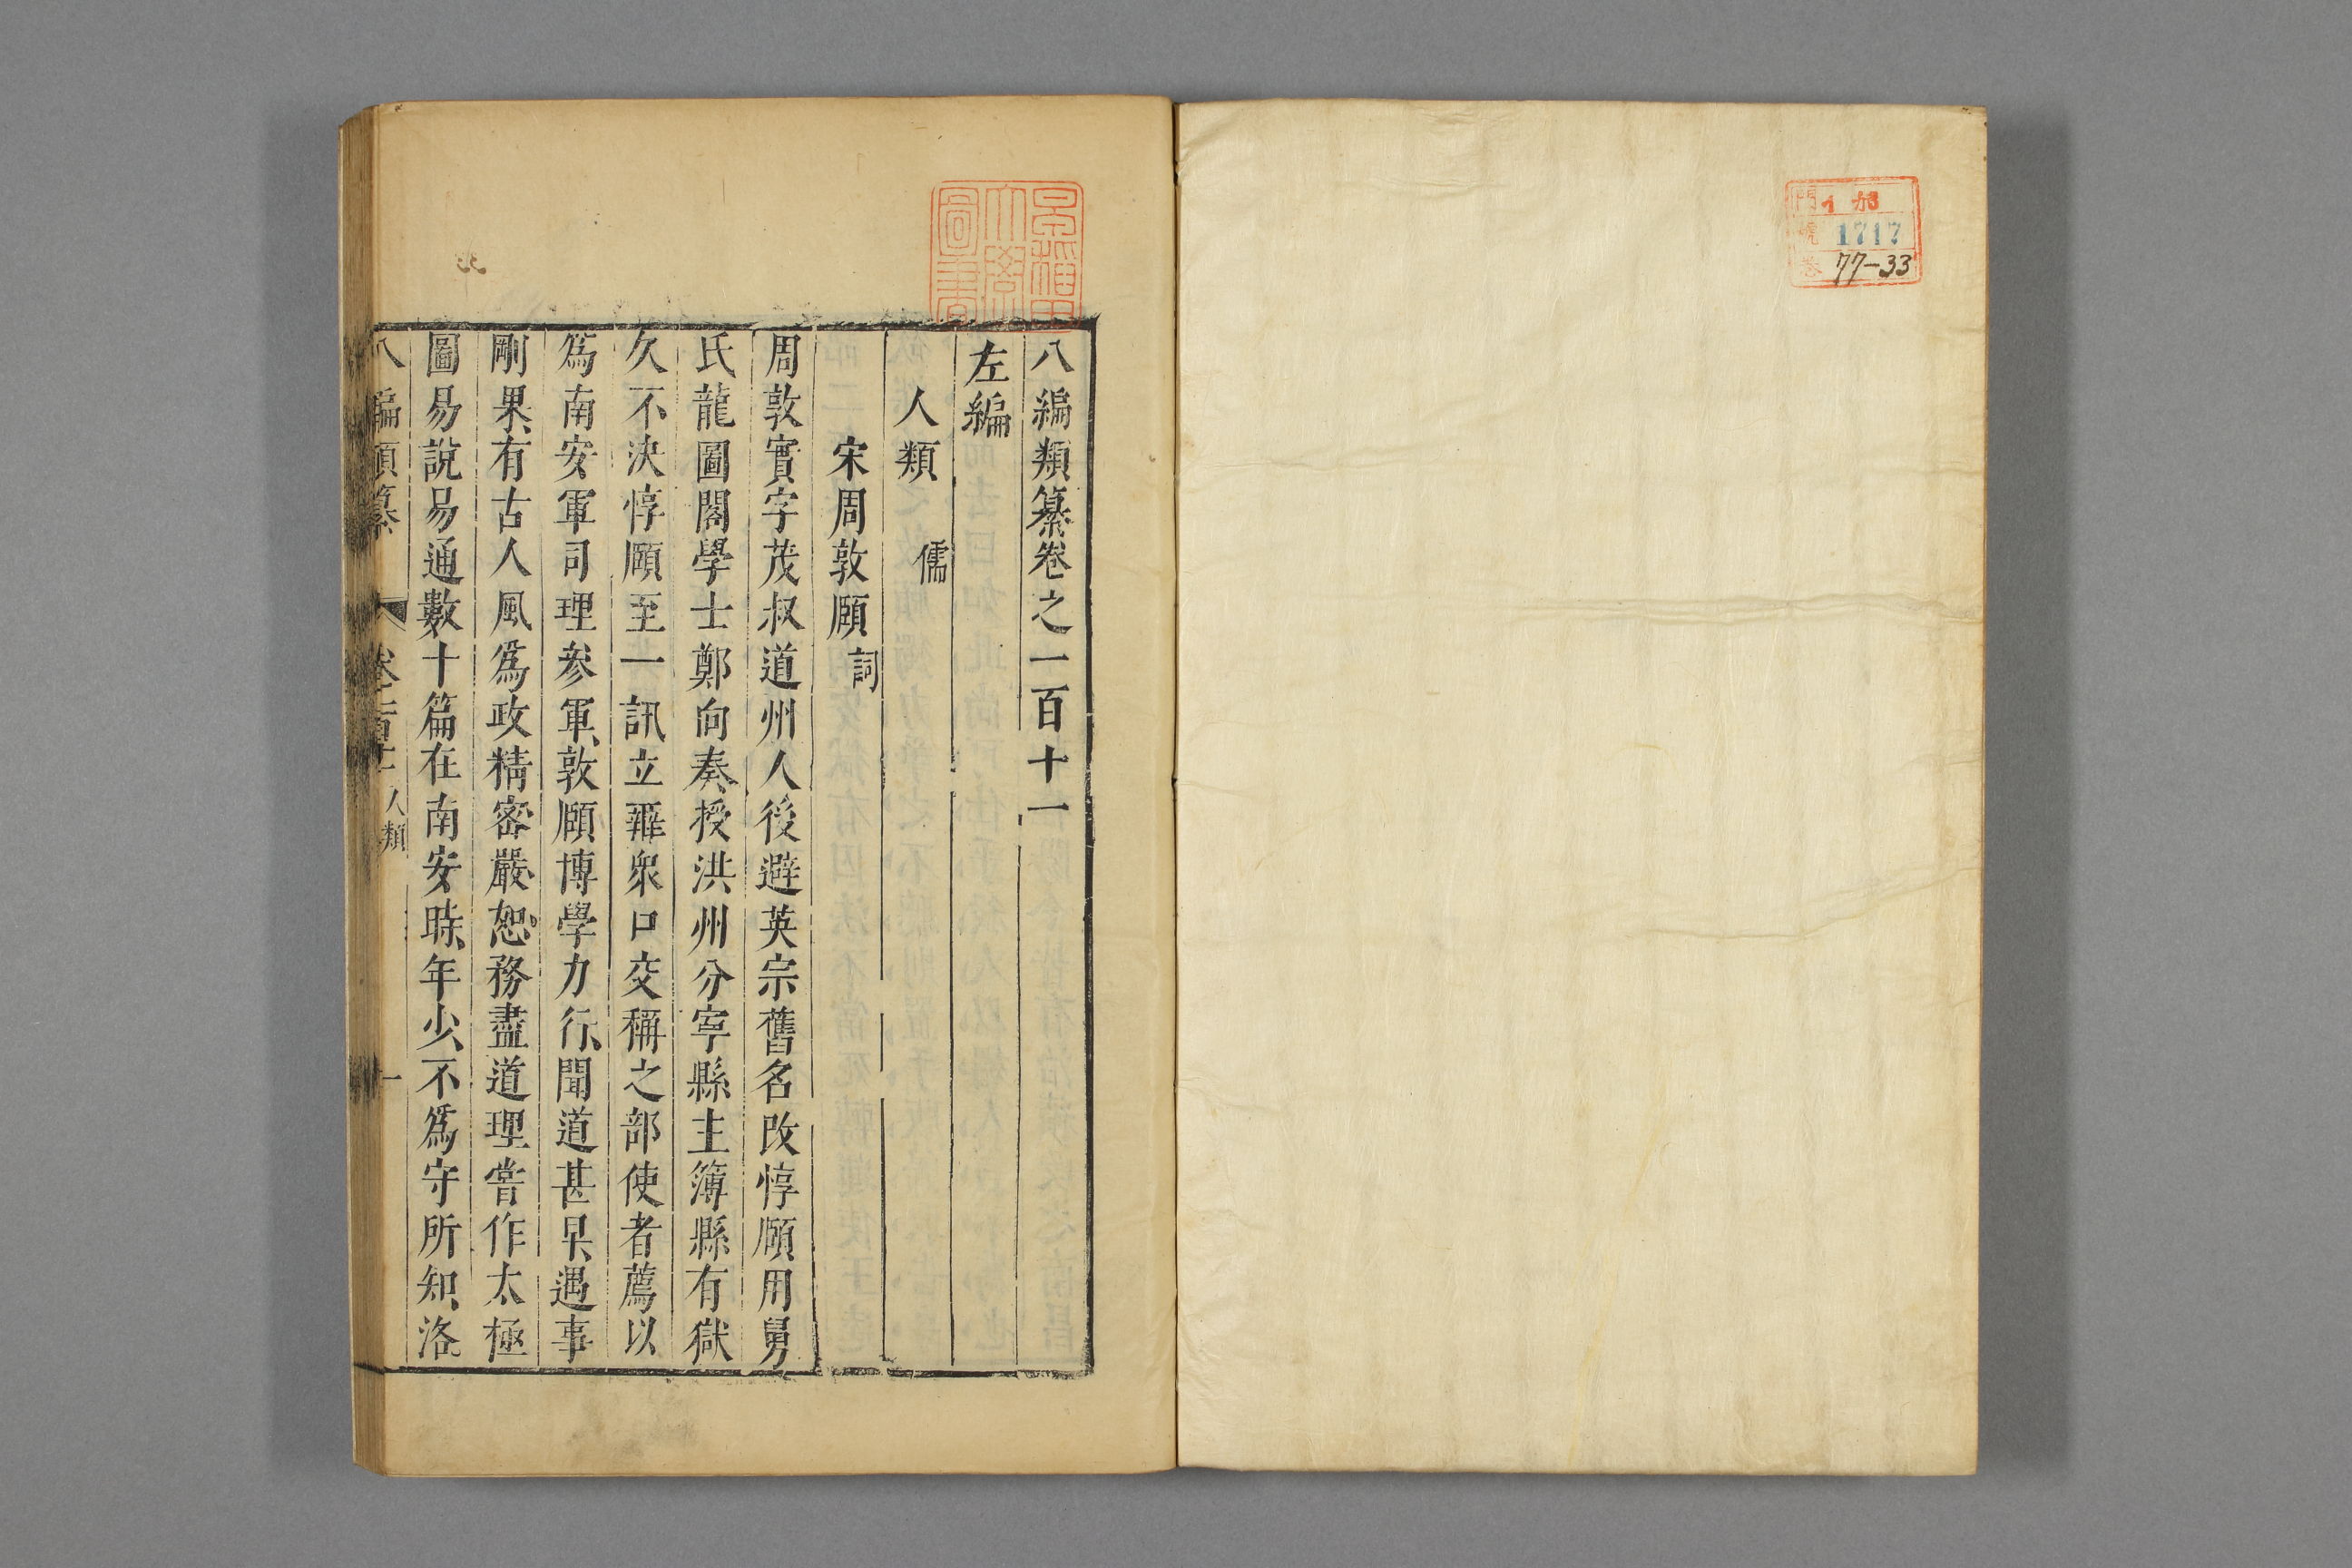 門 イ 加
號 1717
巻 77-33
早稲田大學圖書
八編類纂卷之一百十一
左編
人類 儒
宋周敦頤 詞
周敦實字茂叔道州人後避英宗舊名改惇頤用舅
氏龍圖閣學士鄭向奏授洪州分寧縣主簿縣有獄
久不決惇頤至一訊立辨衆口交稱之部使者薦以
爲南安軍司理參軍敦頤博學力行聞道甚早遇事
剛果有古人風爲政精密嚴恕務盡道理嘗作太極
圖易說易通數十篇在南安時年少不爲守所知洛
八編類纂 卷一百十一 人類 一